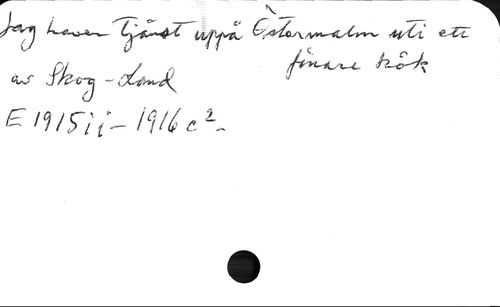 Jag haver Tjänst uppå Östermalm uti ett
finare kök
av Skog-Lond
E 1915 ii - 1916 c 2.